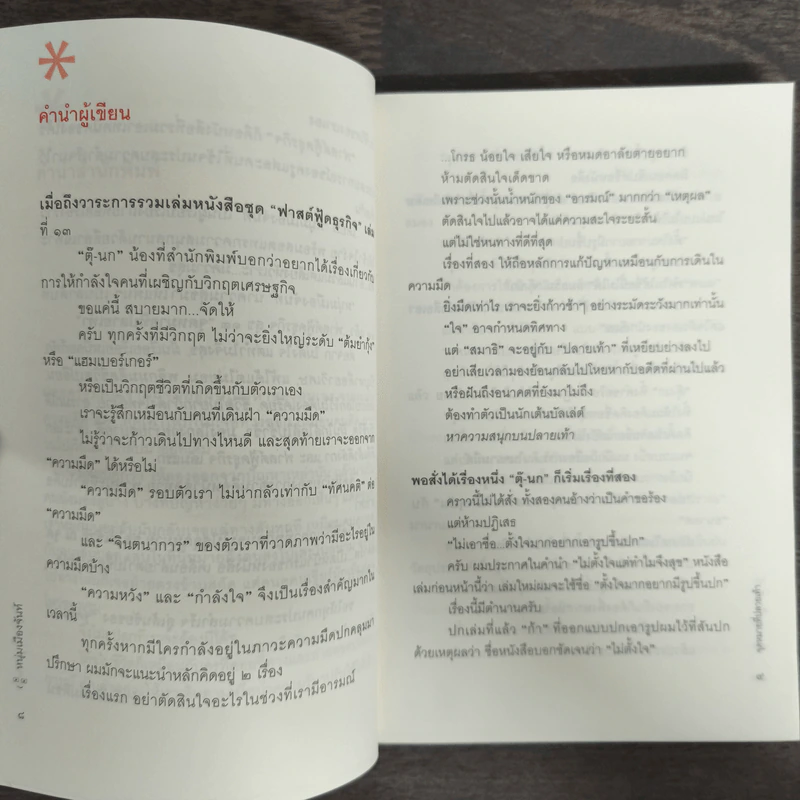 *
คำนำผู้เขียน
เมื่อถึงวาระการรวมเล่มหนังสือชุด “ฟาสต์ฟู้ดธุรกิจ” เล่ม
ที่ ๑๓
“ตุ๊-นก” น้องที่สำนักพิมพ์บอกว่าอยากได้เรื่องเกี่ยวกับ
การให้กำลังใจคนที่เผชิญกับวิกฤตเศรษฐกิจ
ขอแค่นี้ สบายมาก...จัดให้
ครับ ทุกครั้งที่มีวิกฤต ไม่ว่าจะยิ่งใหญ่ระดับ “ต้มยำกุ้ง”
หรือ “แฮมเบอร์เกอร์”
หรือเป็นวิกฤตชีวิตที่เกิดขึ้นกับตัวเราเอง
เราจะรู้สึกเหมือนกับคนที่เดินฝ่า “ความมืด”
ไม่รู้ว่าจะก้าวเดินไปทางไหนดี และสุดท้ายเราจะออกจาก
“ความมืด” ได้หรือไม่
“ความมืด” รอบตัวเรา ไม่น่ากลัวเท่ากับ “ทัศนคติ” ต่อ
“ความมืด”
และ “จินตนาการ” ของตัวเราที่วาดภาพว่ามีอะไรอยู่ใน
ความมืดบ้าง
“ความหวัง” และ “กำลังใจ” จึงเป็นเรื่องสำคัญมากใน
เวลานี้
ทุกครั้งหากมีใครกำลังอยู่ในภาวะความมืดปกคลุมมา
ปรึกษา ผมมักจะแนะนำหลักคิดอยู่ ๒ เรื่อง
เรื่องแรก อย่าตัดสินใจอะไรในช่วงที่เรามีอารมณ์
หนุ่มเมืองจันท์
๘
...โกรธ น้อยใจ เสียใจ หรือหมดอาลัยตายอยาก
ห้ามตัดสินใจเด็ดขาด
เพราะช่วงนั้นน้ำหนักของ “อารมณ์” มากกว่า “เหตุผล”
ตัดสินใจไปแล้วอาจได้แค่ความสะใจระยะสั้น
แต่ไม่ใช่หนทางที่ดีที่สุด
เรื่องที่สอง ให้ถือหลักการแก้ปัญหาเหมือนกับการเดินใน
ความมืด
ยิ่งมืดเท่าไร เราจะยิ่งก้าวช้าๆ อย่างระมัดระวังมากเท่านั้น
“ใจ” อาจกำหนดทิศทาง
แต่ “สมาธิ” จะอยู่กับ “ปลายเท้า” ที่เหยียบย่างลงไป
อย่าเสียเวลามองย้อนกลับไปโหยหากับอดีตที่ผ่านไปแล้ว
หรือฝันถึงอนาคตที่ยังมาไม่ถึง
ต้องทำตัวเป็นนักเต้นบัลเล่ต์
หาความสนุกบนปลายเท้า
พอสั่งได้เรื่องหนึ่ง “ตุ๊-นก” ก็เริ่มเรื่องที่สอง
คราวนี้ไม่ได้สั่ง ทั้งสองคนอ้างว่าเป็นคำขอร้อง
แต่ห้ามปฏิเสธ
“ไม่เอาชื่อ...ตั้งใจมากอยากเอารูปขึ้นปก”
ครับ ผมประกาศในคำนำ “ไม่ตั้งใจแต่ทำไมจึงสุข” หนังสือ
เล่มก่อนหน้านี้ว่า เล่มใหม่ผมจะใช้ชื่อ “ตั้งใจมากอยากมีรูปขึ้นปก”
เรื่องนี้มีตำนานครับ
ปกเล่มที่แล้ว “ก้า” ที่ออกแบบปกเอารูปผมไว้ที่สันปก
ด้วยเหตุผลว่า ชื่อหนังสือบอกชัดเจนว่า “ไม่ตั้งใจ”
๙